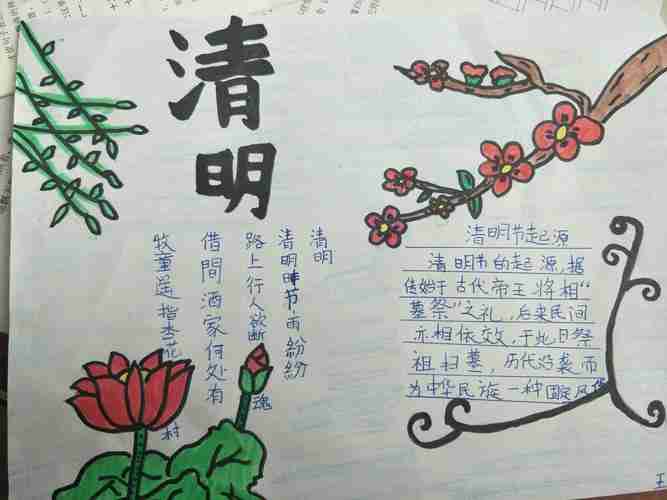 清明
清明
清明時节雨紛紛
路上行人欲断魂
借間酒家何处有
牧童遥指杏花村
清明节起源
清明节的起源,据
传始于古代帝王将相“
墓祭”之礼，后来民间
亦相依效，于此日祭
祖扫墓，历代沿袭而
为中华民族一种固定风